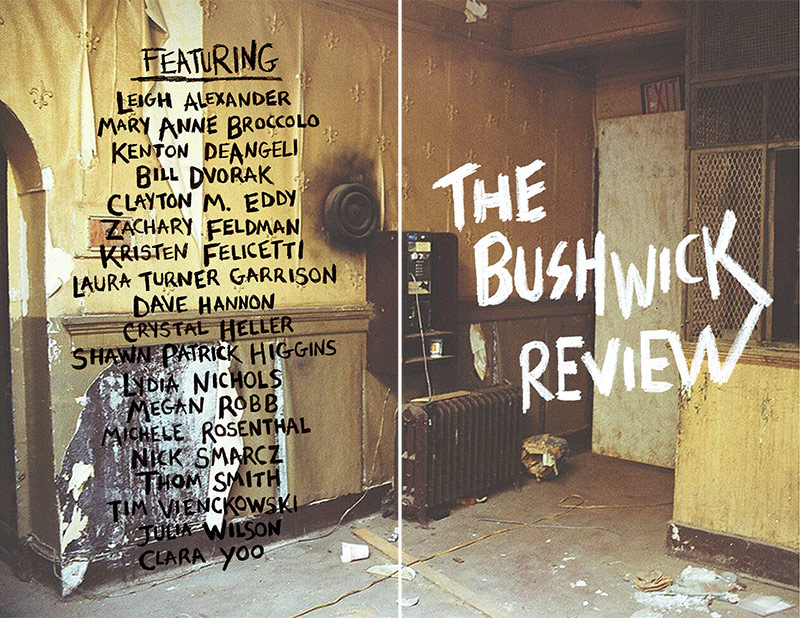 FEATURING
LEIGH ALEXANDER
MARY ANNE BROCCOLO
KENTON DEANGELI
BILL DVORAK
CLAYTON M. EDDY
ZACHARY FELDMAN
KRISTEN FELICETTI
LAURA TURNER GARRISON
DAVE HANNON
CRYSTAL HELLER
SHAWN PATRICK HIGGINS
LYDIA NICHOLS
MEGAN ROBB
MICHELE ROSENTHAL
NICK SMARCZ
THOM SMITH
TIM VIENCKOWSKI
JULIA WILSON
CLARA YOO
EXIT
THE
BUSHWICK
REVIEW